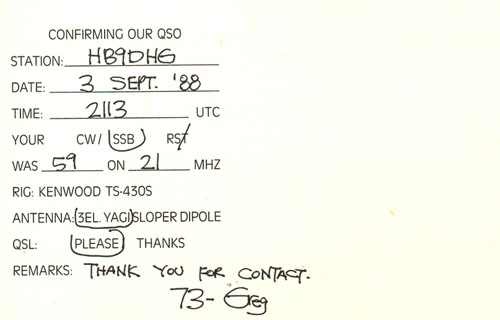 CONFIRMING OUR QSO
STATION: HB9DHG
DATE: 3 SEPT. '88
TIME: 2113 UTC
YOUR CW/ SSB RST
WAS 59 ON 21 MHZ
RIG: KENWOOD TS-430S
ANTENNA: 3EL. YAGI SLOPER DIPOLE
QSL: PLEASE THANKS
REMARKS: THANK YOU FOR CONTACT.
73- Greg